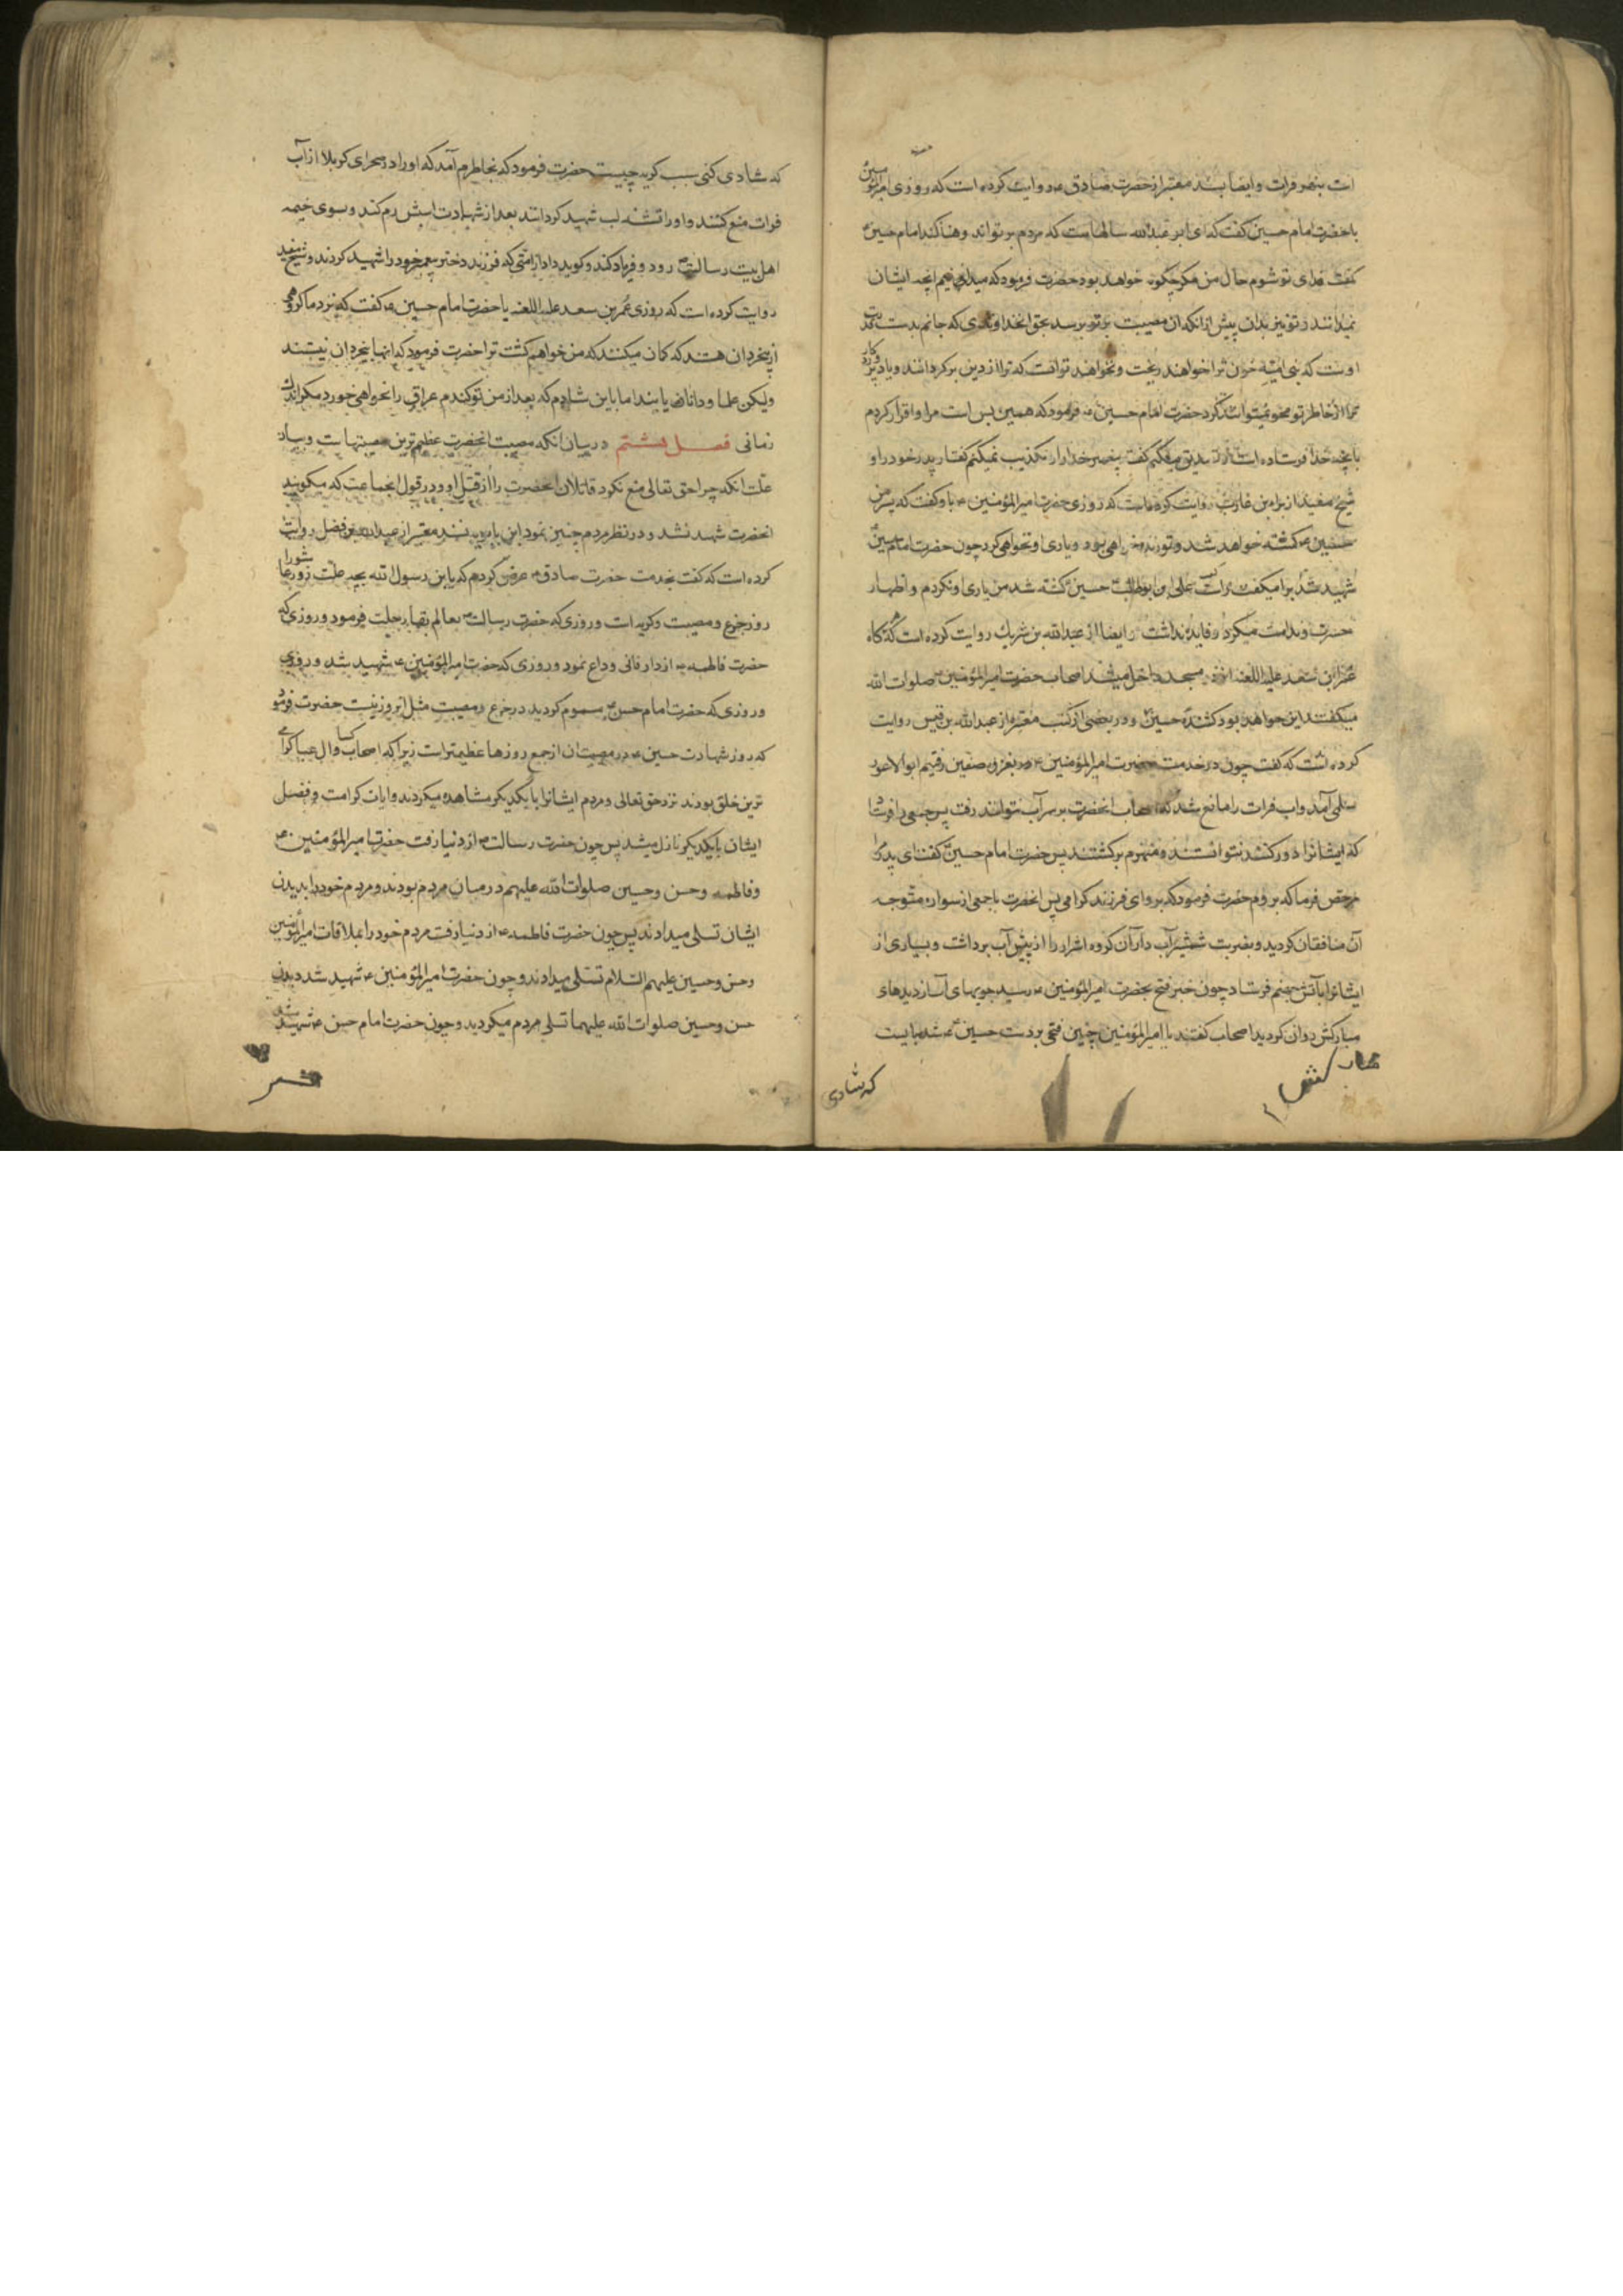 است بنهر فرات و ایضا بسند معتبر از حضرت صادق ع روایت کرده است که روزی امیرالمؤمنین
با حضرت امام حسین گفت که ای ابو عبدالله سالهاست که مردم بر تواند امام حسین ع
گفت فدای تو شوم حال من مگر چگونه خواهد بود حضرت فرمود که میدانیم انچه ایشان
نمیدانند و تو نیز بدان پیش از انکه ان مصیبت بر تو برسد بحق انخداوندی که جانم بدست قدرت
اوست که بنی امیه خون ترا خواهند ریخت و نخواهند توانست که ترا از دین برگردانند و یاد پروردگار
ترا از خاطر تو محو نمیتوانند کرد حضرت امام حسین ع فرمود که همین بس است مرا و اقرار کردم
بانچه خدا فرستاده است و تصدیق میکنم گفت پیغمبر خدا را و تکذیب نمیکنم گفتار پدر خود را و
شیخ مفید از براء بن عازب روایت کرده است که روزی حضرت امیرالمؤمنین ع باو گفت که پسر من
حسین ع کشته خواهد شد و تو زنده خواهی بود و یاری او نخواهی کرد چون حضرت امام حسین ع
شهید شد برا میگفت راست علی بن ابوطالب حسین ع کشته شد من یاری او نکردم و اظهار
حسرت و ندامت میکرد و فایده نداشت و ایضا از عبدالله بن شریک روایت کرده است که هرگاه
عمر ابن سعد علیه اللعنه از در مسجد داخل میشد اصحاب حضرت امیرالمؤمنین صلوات الله
میگفتند این خواهد بود کشندهٔ حسین ع و در بعضی از کتب معتبره از عبدالله بن قیس روایت
کرده است که گفت چون در خدمت حضرت امیرالمؤمنین ع بغزوه صفین رفتیم ابوالاعور
سلمی آمد و اب فرات را مانع شد که اصحاب انحضرت بر سر آب نتوانند رفت پس جمعی را فرستاد
که ایشانرا دور کنند نتوانستند و منهزم برگشتند پس حضرت امام حسین ع گفت ای پدر مرا
مرخص فرما که بروم حضرت فرمود که برو ای فرزند گرامی پس انحضرت با جمعی از سواره متوجه
آن منافقان گردید و بضربت شمشیر آب دار آن گروه اشرار را از پیش آب برداشت و بسیاری از
ایشانرا بآتش جهنم فرستاد چون خبر فتح بحضرت امیرالمؤمنین ع رسید جویهای آب از دیدهای
مبارکش روان گردید اصحاب گفتند یا امیرالمؤمنین چنین فتحی بر دست حسین ع شد میبایست
که شادی
که شادی کنی سبب گریه چیست حضرت فرمود که بخاطرم آمد که او را در صحرای کربلا از آب
فرات منع کنند و او را تشنه لب شهید گردانند بعد از شهادت اسبش رم کند و بسوی خیمه
اهل بیت رسالت ص رود و فریاد کند و گوید داد از امتی که فرزند دختر پیغمبر خود را شهید کردند و شیخ مفید
روایت کرده است که روزی عمر بن سعد علیه اللعنه با حضرت امام حسین ع گفت که نزد ما گروهی
از بیخردان هستند که گمان میکنند که من خواهم کشت ترا حضرت فرمود که انها بیخردان نیستند
ولیکن علما و دانایانند اما باین شادم که بعد از من تو گندم عراق را نخواهی خورد مگر اندک
زمانی فصل هشتم در بیان انکه مصیبت انحضرت عظیم ترین مصیبتهاست و بیان
علت انکه چرا حق تعالی منع نکرد قاتلان انحضرت را از قتل او و در قول انجماعت که میگویند
انحضرت شهید نشد و در نظر مردم چنین نمود ابن بابویه بسند معتبر از عبدالله بن فضل روایت
کرده است که گفت بخدمت حضرت صادق ع عرض کردم که یا ابن رسول الله بچه علت روز عاشورا
روز جزع و مصیبت و گریه است و روزی که حضرت رسالت ص بعالم بقا رحلت فرمود و روزی که
حضرت فاطمه ع از دار فانی وداع نمود و روزی که حضرت امیرالمؤمنین ع شهید شد و روزی
و روزی که حضرت امام حسن ع مسموم گردید در جزع و مصیبت مثل این روز نیست حضرت فرمود
که روز شهادت حسین ع در مصیبت ان از جمیع روزها عظیمتر است زیرا که اصحاب کسا و ال عبا گرامی
ترین خلق بودند نزد حق تعالی و مردم ایشانرا با یکدیگر مشاهده میکردند و ایات کرامت و فضل
ایشان با یکدیگر نازل میشد پس چون حضرت رسالت ص از دنیا رفت حضرت امیرالمؤمنین ع
و فاطمه و حسن و حسین صلوات الله علیهم در میان مردم بودند و مردم خود را بدیدن
ایشان تسلی میدادند پس چون حضرت فاطمه ع از دنیا رفت مردم خود را بملاقات امیرالمؤمنین
و حسن و حسین علیهم السلام تسلی میدادند و چون حضرت امیرالمؤمنین ع شهید شد بدیدن
حسن و حسین صلوات الله علیهما تسلی مردم میگردید و چون حضرت امام حسن ع شهید شد